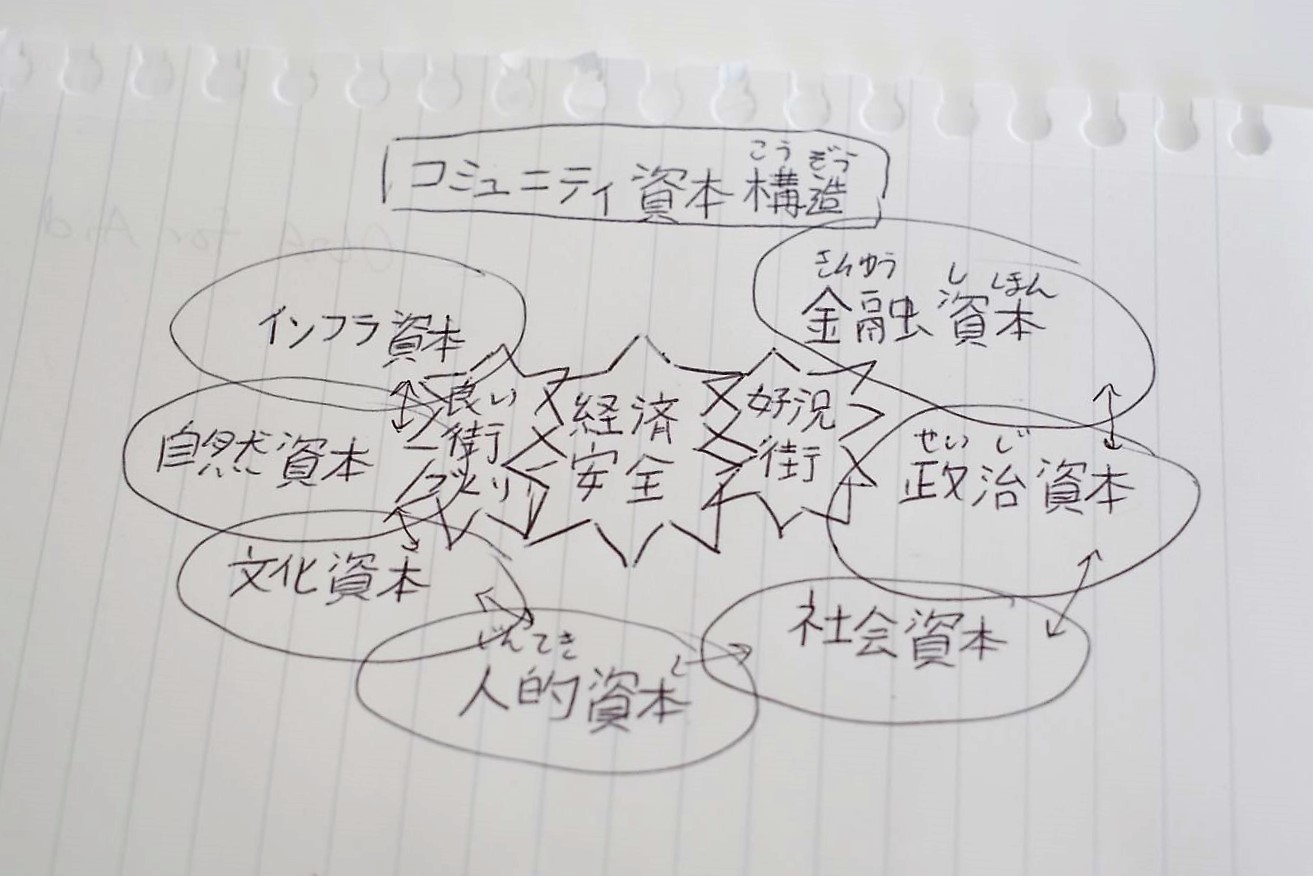 こうぞう
コミュニティ資本構造
きんゆう しほん
金融資本
インフラ資本
良い
街
づくり
経済
安全
好況
街
自然資本
せいじ
政治資本
文化資本
社会資本
じんてき
人的資本